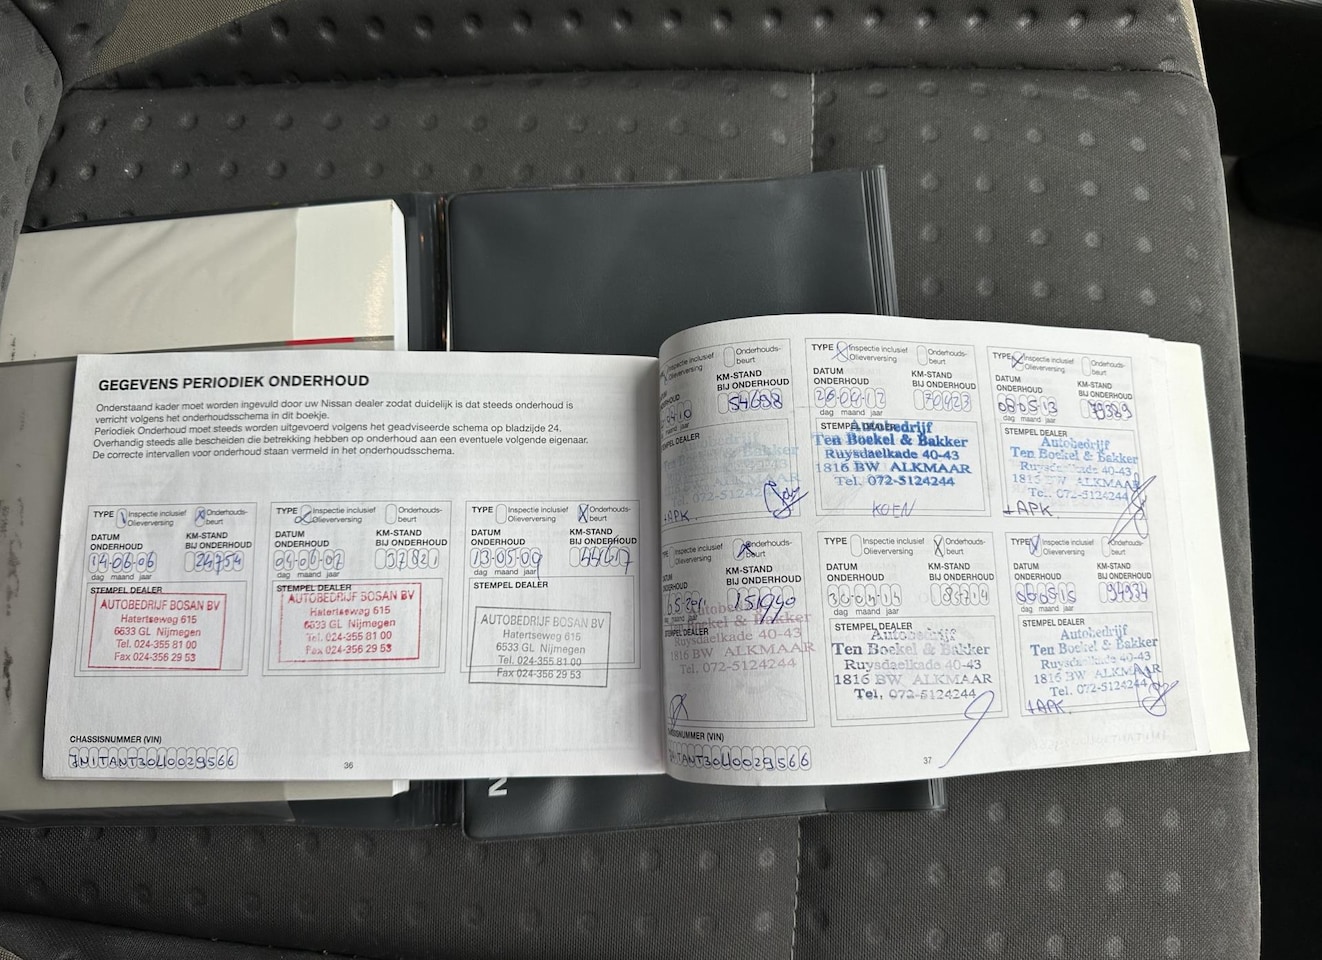 GEGEVENS PERIODIEK ONDERHOUD
Onderstaand kader moet worden ingevuld door uw Nissan dealer zodat duidelijk is dat steeds onderhoud is
verricht volgens het onderhoudsschema in dit boekje.
Periodiek Onderhoud moet steeds worden uitgevoerd volgens het geadviseerde schema op bladzijde 24.
Overhandig steeds alle bescheiden die betrekking hebben op onderhoud aan een eventuele volgende eigenaar.
De correcte intervallen voor onderhoud staan vermeld in het onderhoudsschema.
TYPE Inspectie inclusief Olieverversing Onderhouds-beurt
DATUM ONDERHOUD KM-STAND BIJ ONDERHOUD
14-06-06 24754
dag maand jaar
STEMPEL DEALER
AUTOBEDRIJF BOSAN BV
Hatertseweg 615
6533 GL Nijmegen
Tel. 024-355 81 00
Fax 024-356 29 53
TYPE Inspectie inclusief Olieverversing Onderhouds-beurt
DATUM ONDERHOUD KM-STAND BIJ ONDERHOUD
37821
dag maand jaar
STEMPEL DEALER
AUTOBEDRIJF BOSAN BV
Hatertseweg 615
6533 GL Nijmegen
Tel. 024-355 81 00
Fax 024-356 29 53
TYPE Inspectie inclusief Olieverversing Onderhouds-beurt
DATUM ONDERHOUD KM-STAND BIJ ONDERHOUD
13-05-09
dag maand jaar
STEMPEL DEALER
AUTOBEDRIJF BOSAN BV
Hatertseweg 615
6533 GL Nijmegen
Tel. 024-355 81 00
Fax 024-356 29 53
CHASSISNUMMER (VIN)
36
Inspectie inclusief Olieverversing Onderhouds-beurt
KM-STAND BIJ ONDERHOUD
54698
maand jaar
STEMPEL DEALER
+APK.
TYPE Inspectie inclusief Olieverversing Onderhouds-beurt
DATUM ONDERHOUD KM-STAND BIJ ONDERHOUD
70423
dag maand jaar
STEMPEL DEALER
Autobedrijf
Ten Boekel & Bakker
Ruysdaelkade 40-43
1816 BW ALKMAAR
Tel. 072-5124244
KOEN
TYPE Inspectie inclusief Olieverversing Onderhouds-beurt
DATUM ONDERHOUD KM-STAND BIJ ONDERHOUD
08-05-13
dag maand jaar
STEMPEL DEALER
Autobedrijf
Ten Boekel & Bakker
Ruysdaelkade 40-43
1816 BW ALKMAAR
Tel. 072-5124244
+APK
Inspectie inclusief Olieverversing Onderhouds-beurt
KM-STAND BIJ ONDERHOUD
maand jaar
STEMPEL DEALER
Autobedrijf
Ten Boekel & Bakker
Ruysdaelkade 40-43
1816 BW ALKMAAR
Tel. 072-5124244
TYPE Inspectie inclusief Olieverversing Onderhouds-beurt
DATUM ONDERHOUD KM-STAND BIJ ONDERHOUD
dag maand jaar
STEMPEL DEALER
Autobedrijf
Ten Boekel & Bakker
Ruysdaelkade 40-43
1816 BW ALKMAAR
Tel. 072-5124244
TYPE Inspectie inclusief Olieverversing Onderhouds-beurt
DATUM ONDERHOUD KM-STAND BIJ ONDERHOUD
94934
dag maand jaar
STEMPEL DEALER
Autobedrijf
Ten Boekel & Bakker
Ruysdaelkade 40-43
1816 BW ALKMAAR
Tel. 072-5124244
+APK.
CHASSISNUMMER (VIN)
37